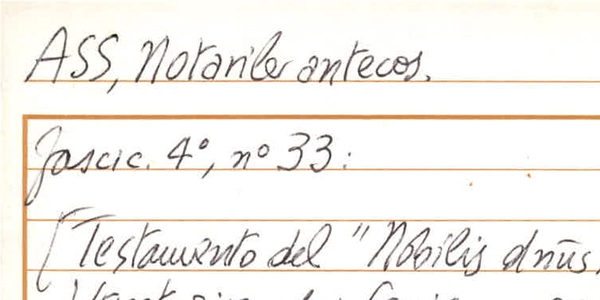 ASS, Notariles antecos.
fascic. 4º, nº 33:
[Testamento del "Nobilis dnūs.